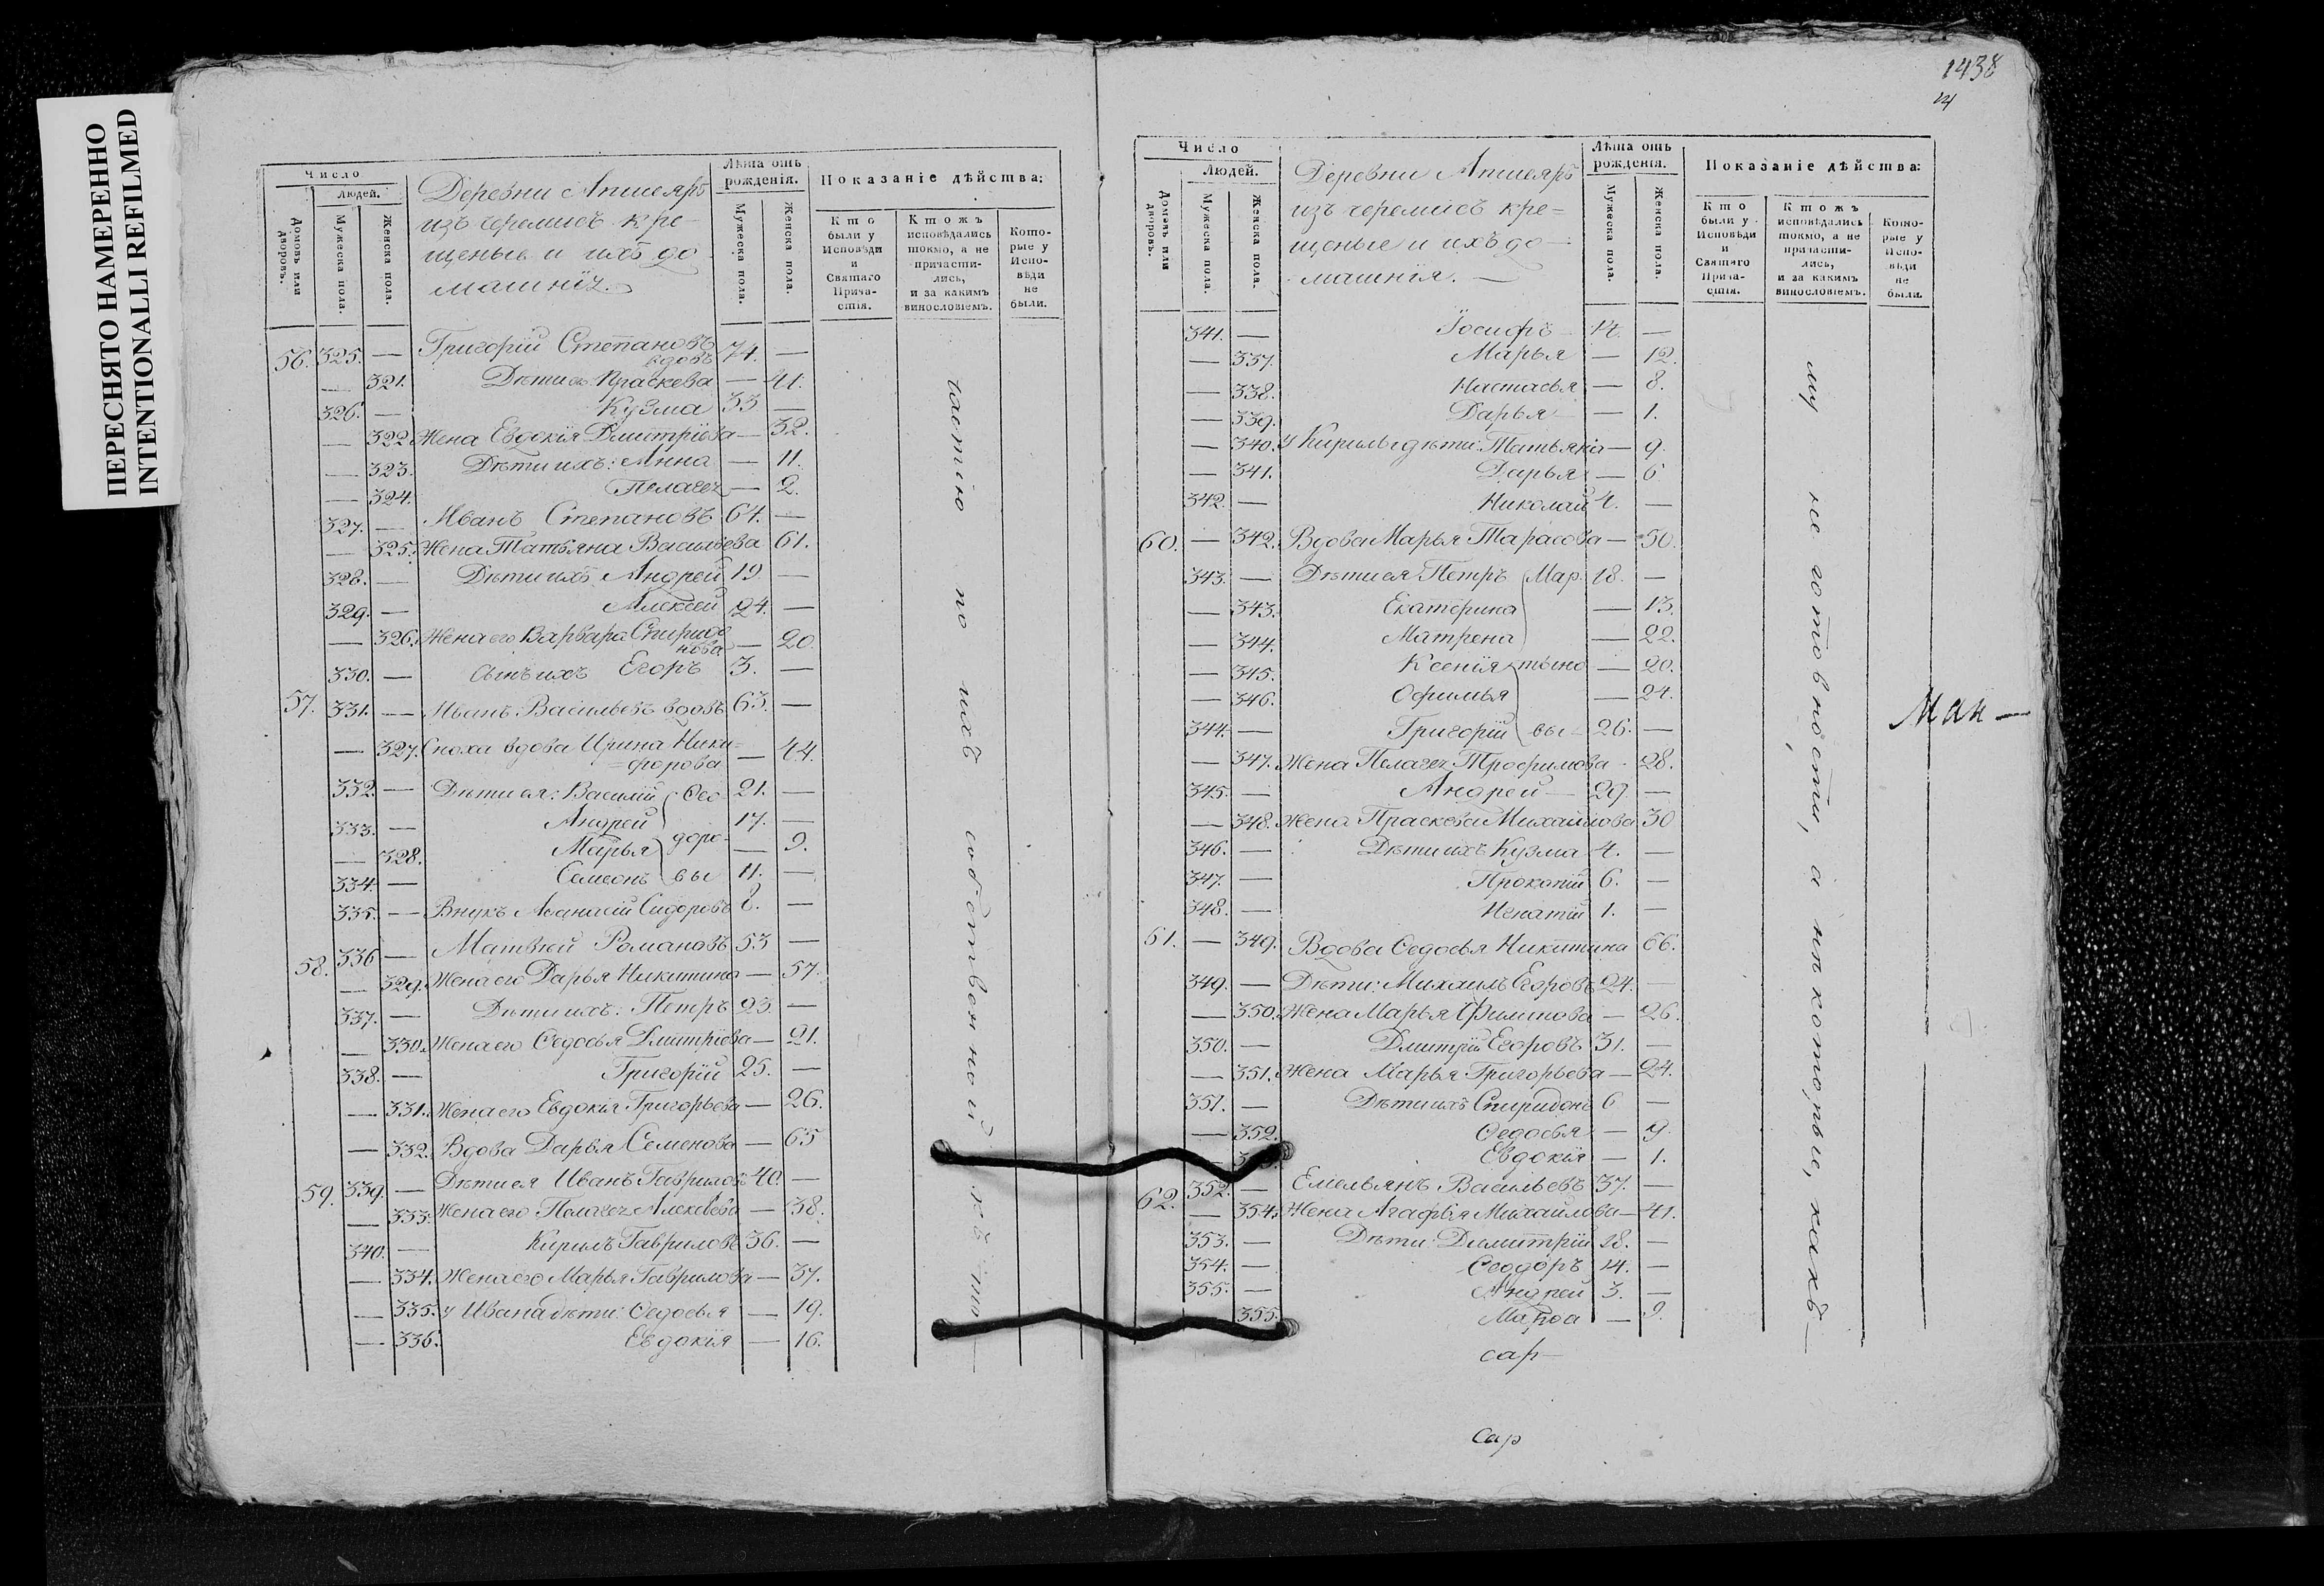 ПЕРЕСНЯТО НАМЕРЕННО
INTENTIONALLI REFILMED
Число
Людей.
Домовъ или дворовъ.
Мужеска пола.
Женска пола.
Деревни Апшеяръ
изъ черемисъ кре-
щеные и ихъ до
машнія
Лѣта отъ рожденія.
Мужеска пола.
Женска пола.
Показаніе дѣйства:
Кто были у Исповѣди и Святаго Прича- стія.
Ктожъ исповѣдались токмо, а не причасти- лись, и за какимъ винословіемъ.
Кото- рые у Испо- вѣди не были.
56. 325. — Григорій Степановъ вдовъ 74. —
— 321. Дѣти ... Праскева — 41.
326. — Кузма 33 —
— 322. Жена Евдокія Дмитріева — 32.
— 323. Дѣти ихъ: Анна — 11.
— 324. Пелагея — 2.
327. — Иванъ Степановъ 64. —
— 325. Жена Татьяна Васильева 61.
328. — Дѣти ихъ Андрей 19 —
329. — Алексей 24. —
— 326. Жена его Варвара Спиридо
нова — 20.
330. — Сынъ ихъ Егоръ 3. —
57. 331. — Иванъ Васильевъ вдовъ 63. —
— 327. Сноха вдова Ирина Ники-
=форова — 44.
332. — Дѣти ея: Василій Ѳео- 21. —
333. — Андрей 17. —
— 328. Марья доро- — 9.
334. — Семеонъ вы 11. —
335. — Внукъ Аѳанасій Сидоровъ 8. —
58. 336 — Матвѣй Романовъ 53 —
— 329. Жена его Дарья Никитина — 57.
337. — Дѣти ихъ: Петръ 23. —
— 330. Жена его Ѳедосья Дмитріева — 21.
338. — Григорій 25. —
— 331. Жена его Евдокія Григорьева — 26.
— 332. Вдова Дарья Семенова — 65
59. 339. — Дѣти ея Иванъ Гавриловъ 40. —
— 333. Жена его Пелагея Алексѣева — 38.
340. — Кирилъ Гавриловъ 36. —
— 334. Жена его Марья Гаврилова — 37.
— 335. У Ивана дѣти: Ѳедосья — 19.
— 336. Евдокія — 16.
частію по ихъ собственной къ то
1438
Число
Людей.
Домовъ или дворовъ.
Мужеска пола.
Женска пола.
Деревни Апшеяръ
изъ черемисъ кре=
щеные и ихъ до—
машнія. —
Лѣта отъ рожденія.
Мужеска пола.
Женска пола.
Показаніе дѣйства:
Кто были у Исповѣди и Святаго Прича- стія.
Ктожъ исповѣдались токмо, а не причасти- лись, и за какимъ винословіемъ.
Кото- рые у Испо- вѣди не были.
341. — Іосифъ 14. —
— 337. Марья — 12.
— 338. Настасья — 8.
— 339. Дарья — 1.
— 340. У Кирилы дѣти: Татьяна — 9.
— 341. Дарья — 6
342. — Николай 4. —
60. — 342. Вдова Марья Тарасова — 50.
343. — Дѣти ея Петръ Мар 18. —
— 343. Екатерина — 13.
— 344. Матрена — 22.
— 345. Ксенія тыно — 20.
— 346. Офимья — 24.
344. — Григорій вы 26. —
— 347. Жена Пелагея Трофимова — 28.
345. — Андрей — 29 —
— 348. Жена Праскева Михайлова 30
346. — Дѣти ихъ Кузма 4. —
347. — Прокопій 6. —
348. — Игнатій 1. —
61. — 349. Вдова Ѳедосья Никитина 66.
349. — Дѣти: Михаилъ Егоровъ 24. —
— 350. Жена Марья Филипова — 26.
350. — Дмитрій Егоровъ 31. —
— 351. Жена Марья Григорьева — 24.
351. — Дѣти ихъ Спиридонъ 6 —
— 352. Ѳедосья — 9.
Евдокія — 1.
62. 352. — Емельянъ Васильевъ 37. —
— 354. Жена Агафья Михайлова — 41.
353. — Дѣти: Димитрій 18. —
354. — Ѳеодоръ 14. —
355. — Андрей 3. —
355. Марѳа — 9.
му не готовности, а нѣкоторые, какъ —
Ман —
сар—
Сар